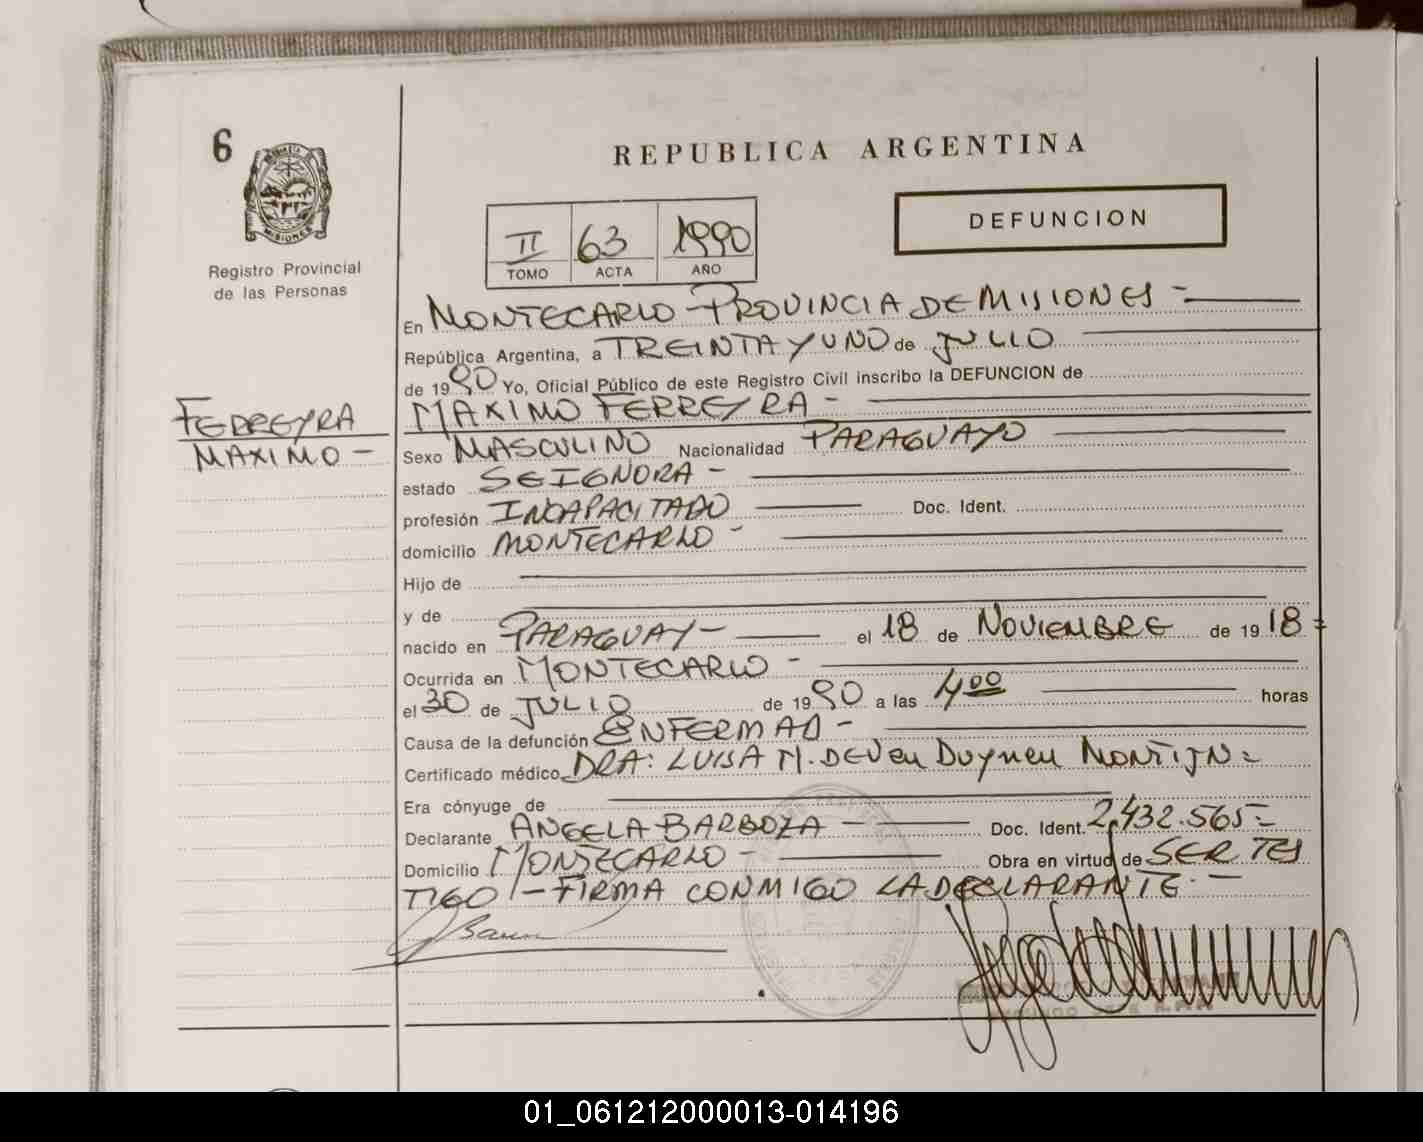 6
REPUBLICA ARGENTINA
MISIONES
Registro Provincial
de las Personas
II 63 1990
TOMO ACTA AÑO
DEFUNCION
En MONTECARLO - PROVINCIA DE MISIONES -
República Argentina, a TREINTA Y UNO de JULIO
de 1990 Yo, Oficial Público de este Registro Civil inscribo la DEFUNCION de
FERREYRA
MAXIMO -
MAXIMO FERREYRA -
Sexo MASCULINO Nacionalidad PARAGUAYO
estado SE IGNORA -
profesión INCAPACITADO Doc. Ident.
domicilio MONTECARLO -
Hijo de
y de
nacido en PARAGUAY - el 18 de NOVIEMBRE de 1918 =
Ocurrida en MONTECARLO -
el 30 de JULIO de 1990 a las 4,00 horas
Causa de la defunción ENFERMAD -
Certificado médico DRA: LUISA M. DE Ven Duynen MONTIJN =
Era cónyuge de
Declarante ANGELA BARBOZA - Doc. Ident. 2.432.565 =
Domicilio MONTECARLO - Obra en virtud de SER TES
TIGO - FIRMA CONMIGO LA DECLARANTE. -
01_061212000013-014196